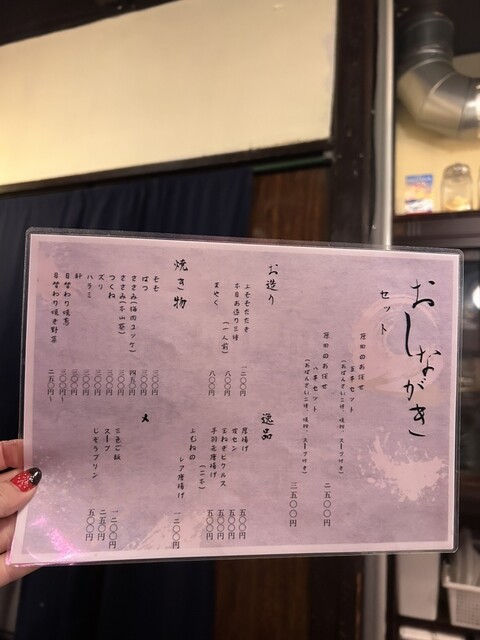 おしながき
セット
のお任せ
五本セット
(おばんざい二種、焼物、スープ付き)
二五〇〇円
のお任せ
八本セット
(おばんざい二種、焼物、スープ付き)
三五〇〇円
お造り
ももたたき 一二〇〇円
本日お造り三種
(一人前) 八〇〇円
八〇〇円
逸品
厚揚げ 五〇〇円
五〇〇円
玉ねぎピクルス 五〇〇円
手羽元唐揚げ
(二本) 五〇〇円
むねの
レア唐揚げ 一二〇〇円
焼き物
もも 三〇〇円
はつ 三〇〇円
ささみ(梅肉ユッケ) 四五〇円
ささみ(本山葵) 三〇〇円
つくね 三〇〇円
ズリ 三〇〇円
ハラミ 三〇〇円
肝 三〇〇円
日替わり焼鳥 三〇〇円~
日替わり焼き野菜 二五〇円~
〆
三色ご飯 一二〇〇円
スープ 二五〇円
じぞうプリン 五〇〇円